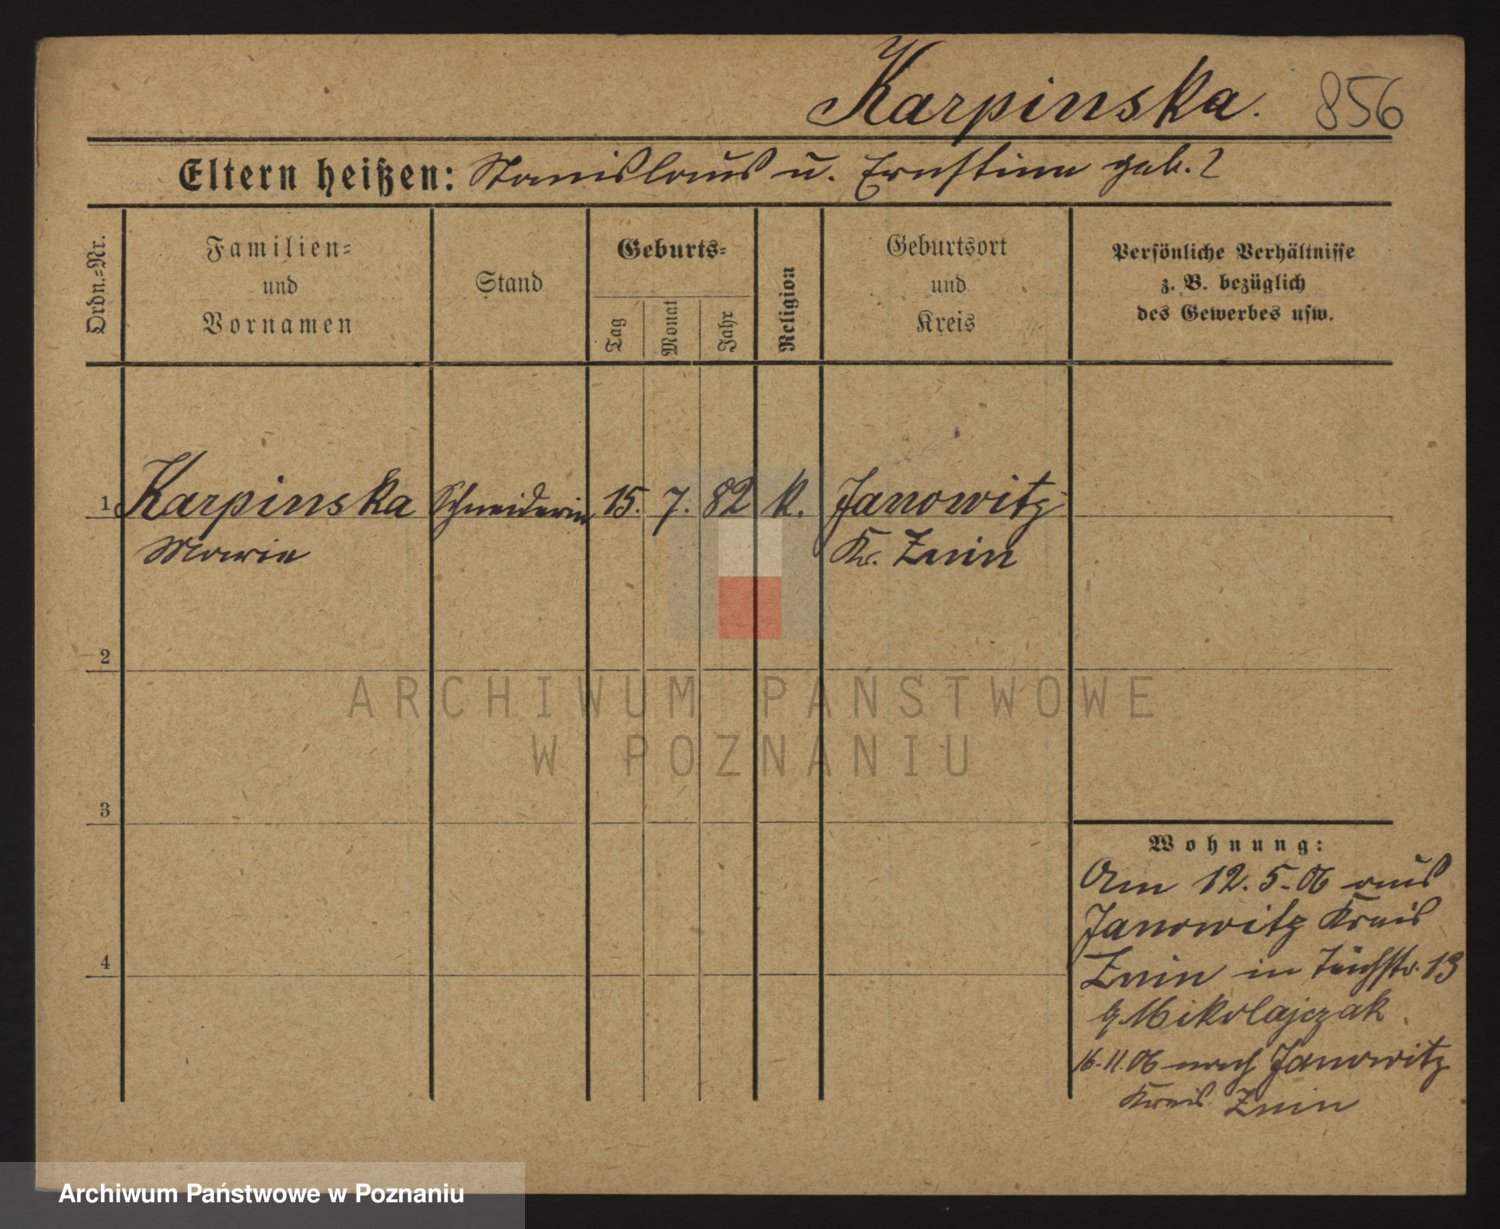 Karpinska. 856
Eltern heißen: Stanislaus u. Ernstine geb. ?
Ordn.-Nr.
Familien-
und
Vornamen
Stand
Geburts-
Tag
Monat
Jahr
Religion
Geburtsort
und
Kreis
Persönliche Verhältnisse
z. B. bezüglich
des Gewerbes usw.
1 Karpinska Schneiderin 15. 7. 82 k. Janowitz
Marie Kr. Znin
2
ARCHIWUM PAŃSTWOWE
W POZNANIU
3
Wohnung:
Am 12.5.06 aus
Janowitz Kreis
4
Znin in Teichstr. 13
Mikolajczak
16.11.06 nach Janowitz
Kreis Znin
Archiwum Państwowe w Poznaniu